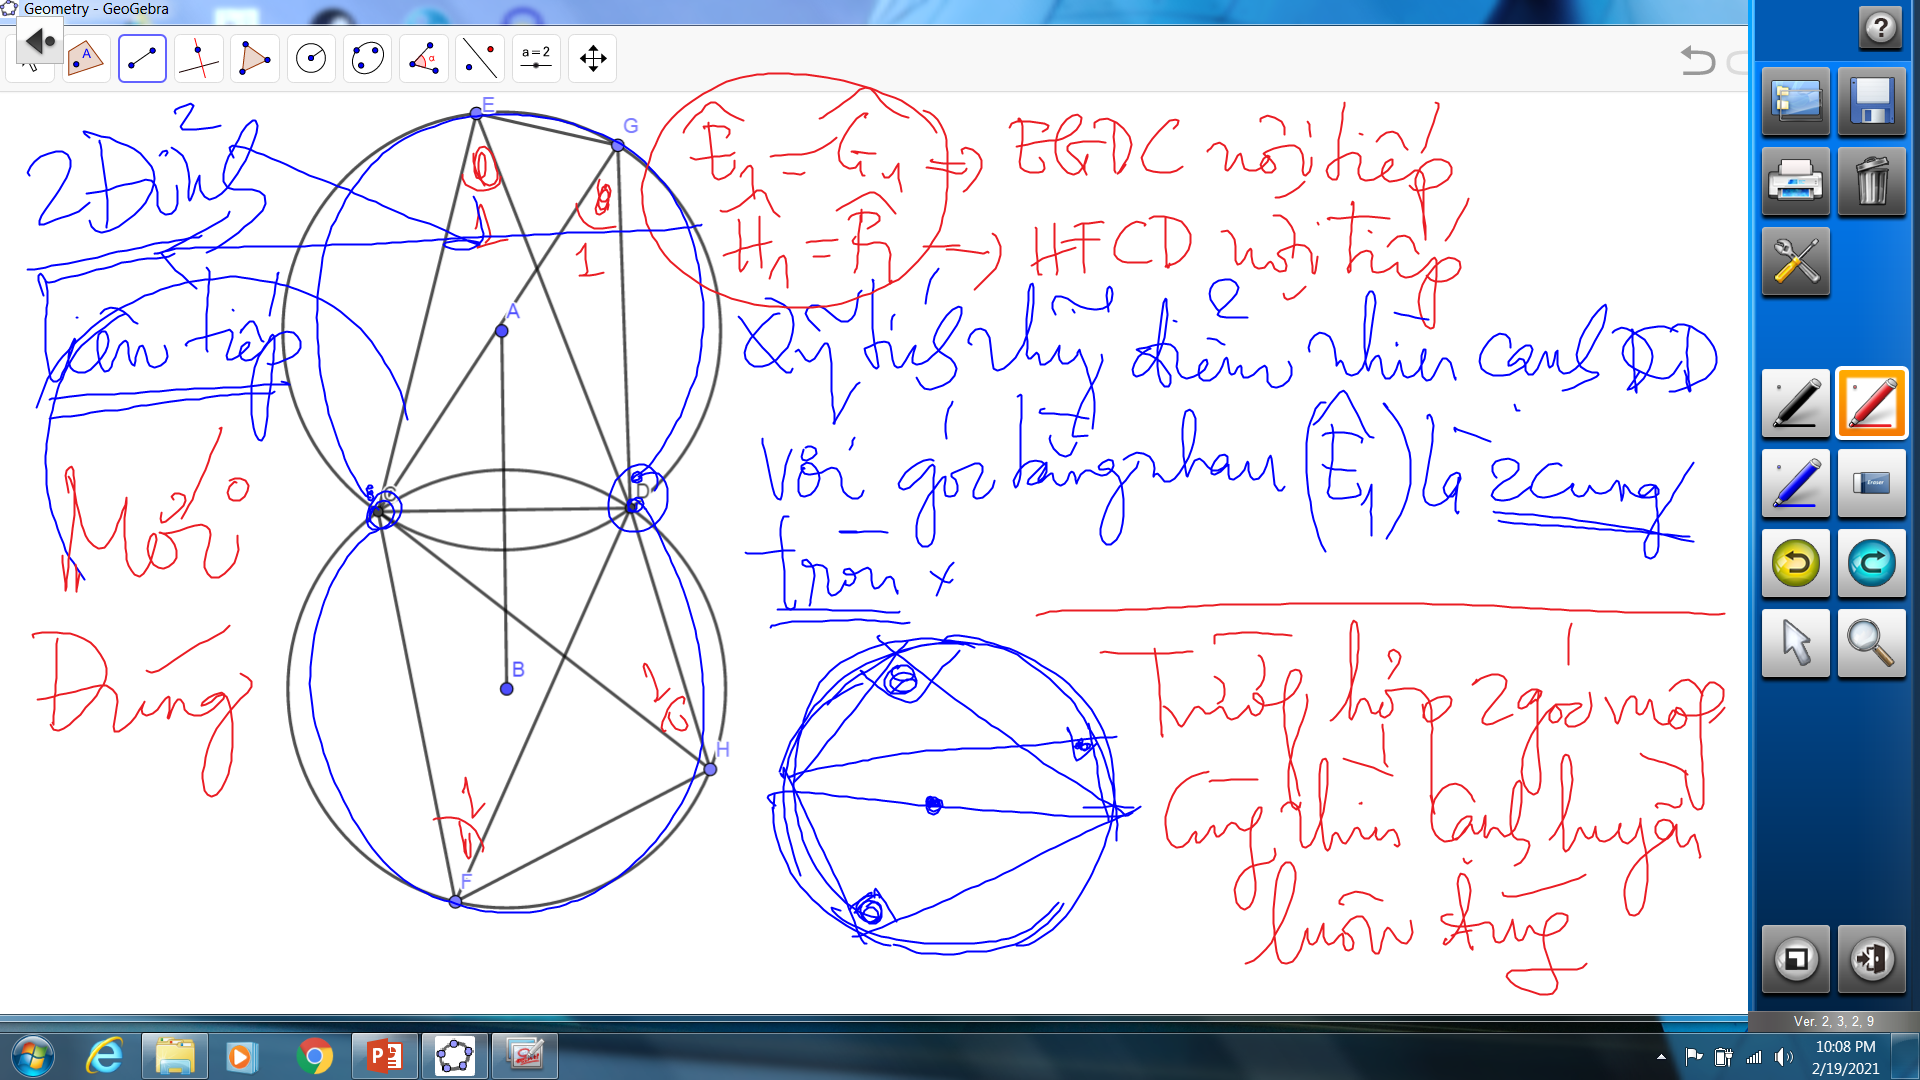 Geometry - GeoGebra
a = 2
2 Đỉnh
2
liên tiếp
Mới
Đúng
E
G
A
C
D
B
H
F
1
1
1
1
Ê₁ = Ĝ₁ => EGDC nội tiếp
Ĥ₁ = F̂₁ → HFCD nội tiếp
Quỹ tích những điểm nhìn cạnh CD
với góc bằng nhau (Ê₁) là 2 cung
tròn
Trường hợp 2 góc vuông
Cùng nhìn cạnh huyền
luôn đúng
Eraser
Ver. 2, 3, 2, 9
10:08 PM
2/19/2021